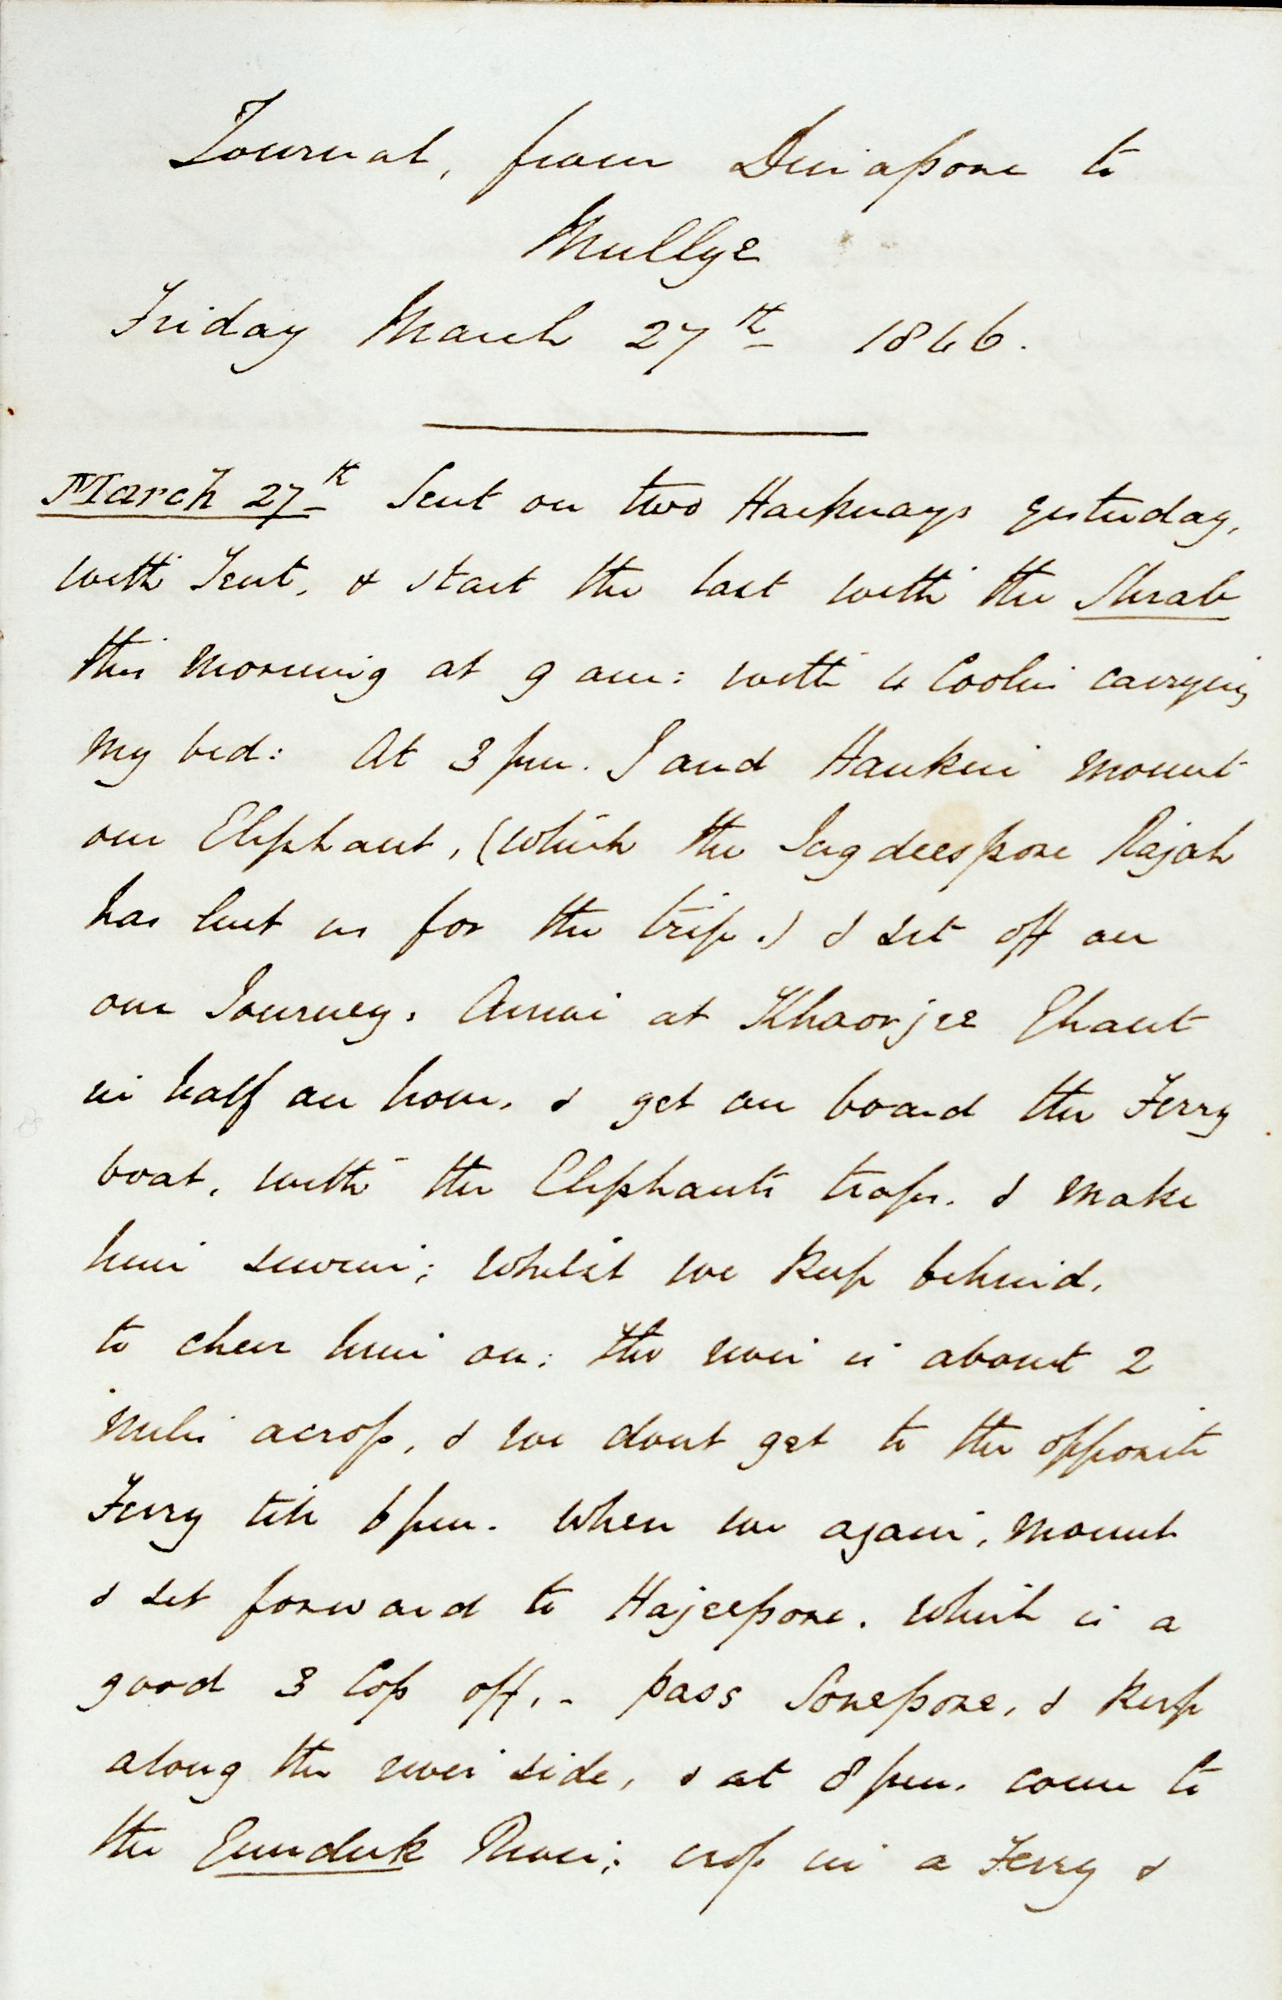 Journal, from Dinapore to
Mullye
Friday March 27th 1846.
March 27th Sent on two Hackrays yesterday,
with Tent, & start the last with the Shrab
this morning at 9 am: with 4 Coolies carrying
my bed: At 3 pm. I and Hankin mount
our Elephant, (which the Jugdeespore Rajah
has lent us for the trip.) & set off on
our Journey. Arrive at Khaorjee Ghaut
in half an hour, & get on board the Ferry
boat, with the Elephants traps. & make
him swim; whilst we keep behind,
to cheer him on: the river is about 2
miles across, & we dont get to the opposite
Ferry till 6 pm. When we again, mount
& set forward to Hajeepore. which is a
good 3 Coss off, - pass Sonepore, & keep
along the river side, & at 8 pm. come to
the Gunduk River; cross in a Ferry &